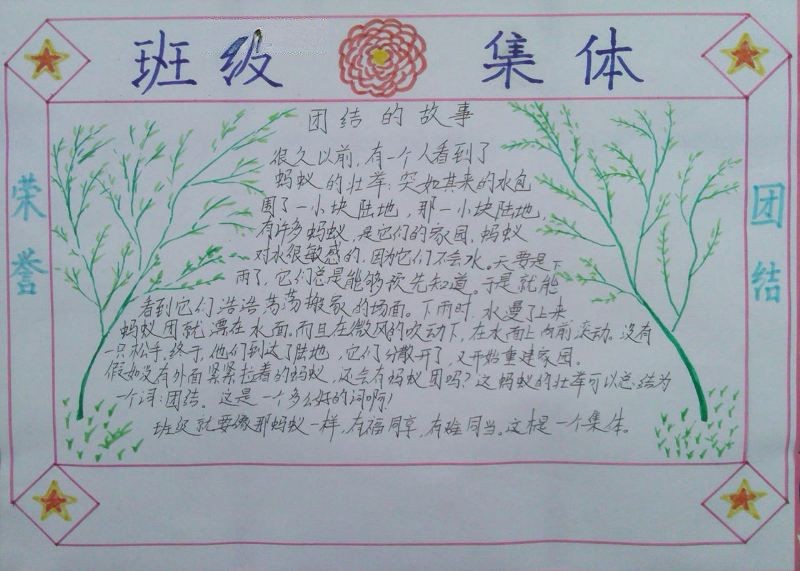 班级 集体
荣誉
团结
团结的故事
很久以前,有一个人看到了
蚂蚁的壮举:突如其来的水包
围了一小块陆地,那一小块陆地,
有许多蚂蚁,是它们的家园,蚂蚁
对水很敏感的,因为它们不会水。天要是下
雨了,它们总是能够预先知道。于是就能
看到它们浩浩荡荡搬家的场面。下雨时,水漫了上来,
蚂蚁团就漂在水面。而且在微风的吹动下,在水面上向前滚动。没有
一只松手,终于,他们到达了陆地,它们分散开了,又开始重建家园。
假如没有外面紧紧拉着的蚂蚁,还会有蚂蚁团吗?这蚂蚁的壮举可以总结为
一个词:团结。这是一个多么好的词啊!
班级就要像那蚂蚁一样,有福同享,有难同当。这才是一个集体。